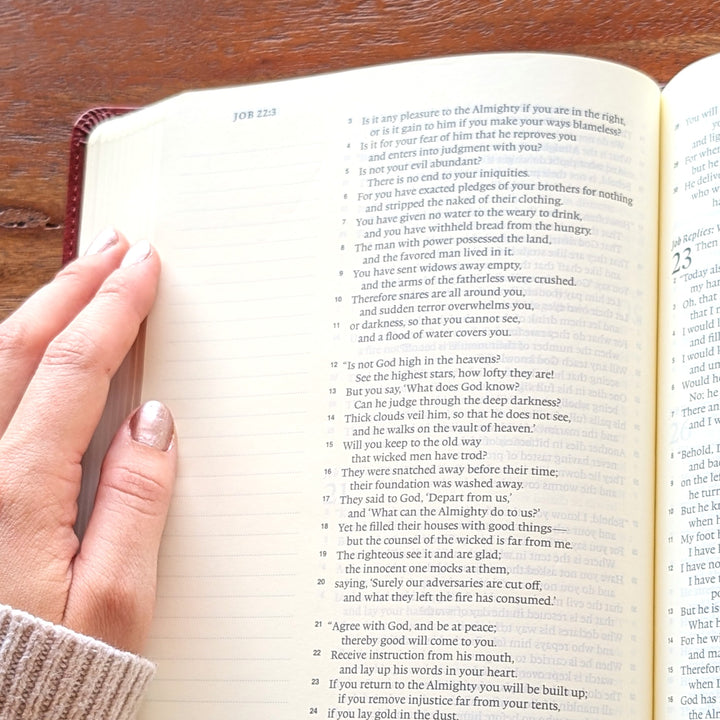 JOB 22:3
3 Is it any pleasure to the Almighty if you are in the right,
or is it gain to him if you make your ways blameless?
4 Is it for your fear of him that he reproves you
and enters into judgment with you?
5 Is not your evil abundant?
There is no end to your iniquities.
6 For you have exacted pledges of your brothers for nothing
and stripped the naked of their clothing.
7 You have given no water to the weary to drink,
and you have withheld bread from the hungry.
8 The man with power possessed the land,
and the favored man lived in it.
9 You have sent widows away empty,
and the arms of the fatherless were crushed.
10 Therefore snares are all around you,
and sudden terror overwhelms you,
11 or darkness, so that you cannot see,
and a flood of water covers you.
12 “Is not God high in the heavens?
See the highest stars, how lofty they are!
13 But you say, ‘What does God know?
Can he judge through the deep darkness?
14 Thick clouds veil him, so that he does not see,
and he walks on the vault of heaven.’
15 Will you keep to the old way
that wicked men have trod?
16 They were snatched away before their time;
their foundation was washed away.
17 They said to God, ‘Depart from us,’
and ‘What can the Almighty do to us?’
18 Yet he filled their houses with good things—
but the counsel of the wicked is far from me.
19 The righteous see it and are glad;
the innocent one mocks at them,
20 saying, ‘Surely our adversaries are cut off,
and what they left the fire has consumed.’
21 “Agree with God, and be at peace;
thereby good will come to you.
22 Receive instruction from his mouth,
and lay up his words in your heart.
23 If you return to the Almighty you will be built up;
if you remove injustice far from your tents,
24 if you lay gold in the dust,
You will
and
For
but he
He
who
Job Replies:
23 Then
2 “Today
my
3 Oh, that
that I
4 I would
and fill
5 I would
and
6 Would
No; he
7 There
and I
8 “Behold, I
and
9 on the
he turn
10 But he
when
11 My foot
I have
12 I have
I have
13 But he
What
14 For he
and
15
when I
16 God has